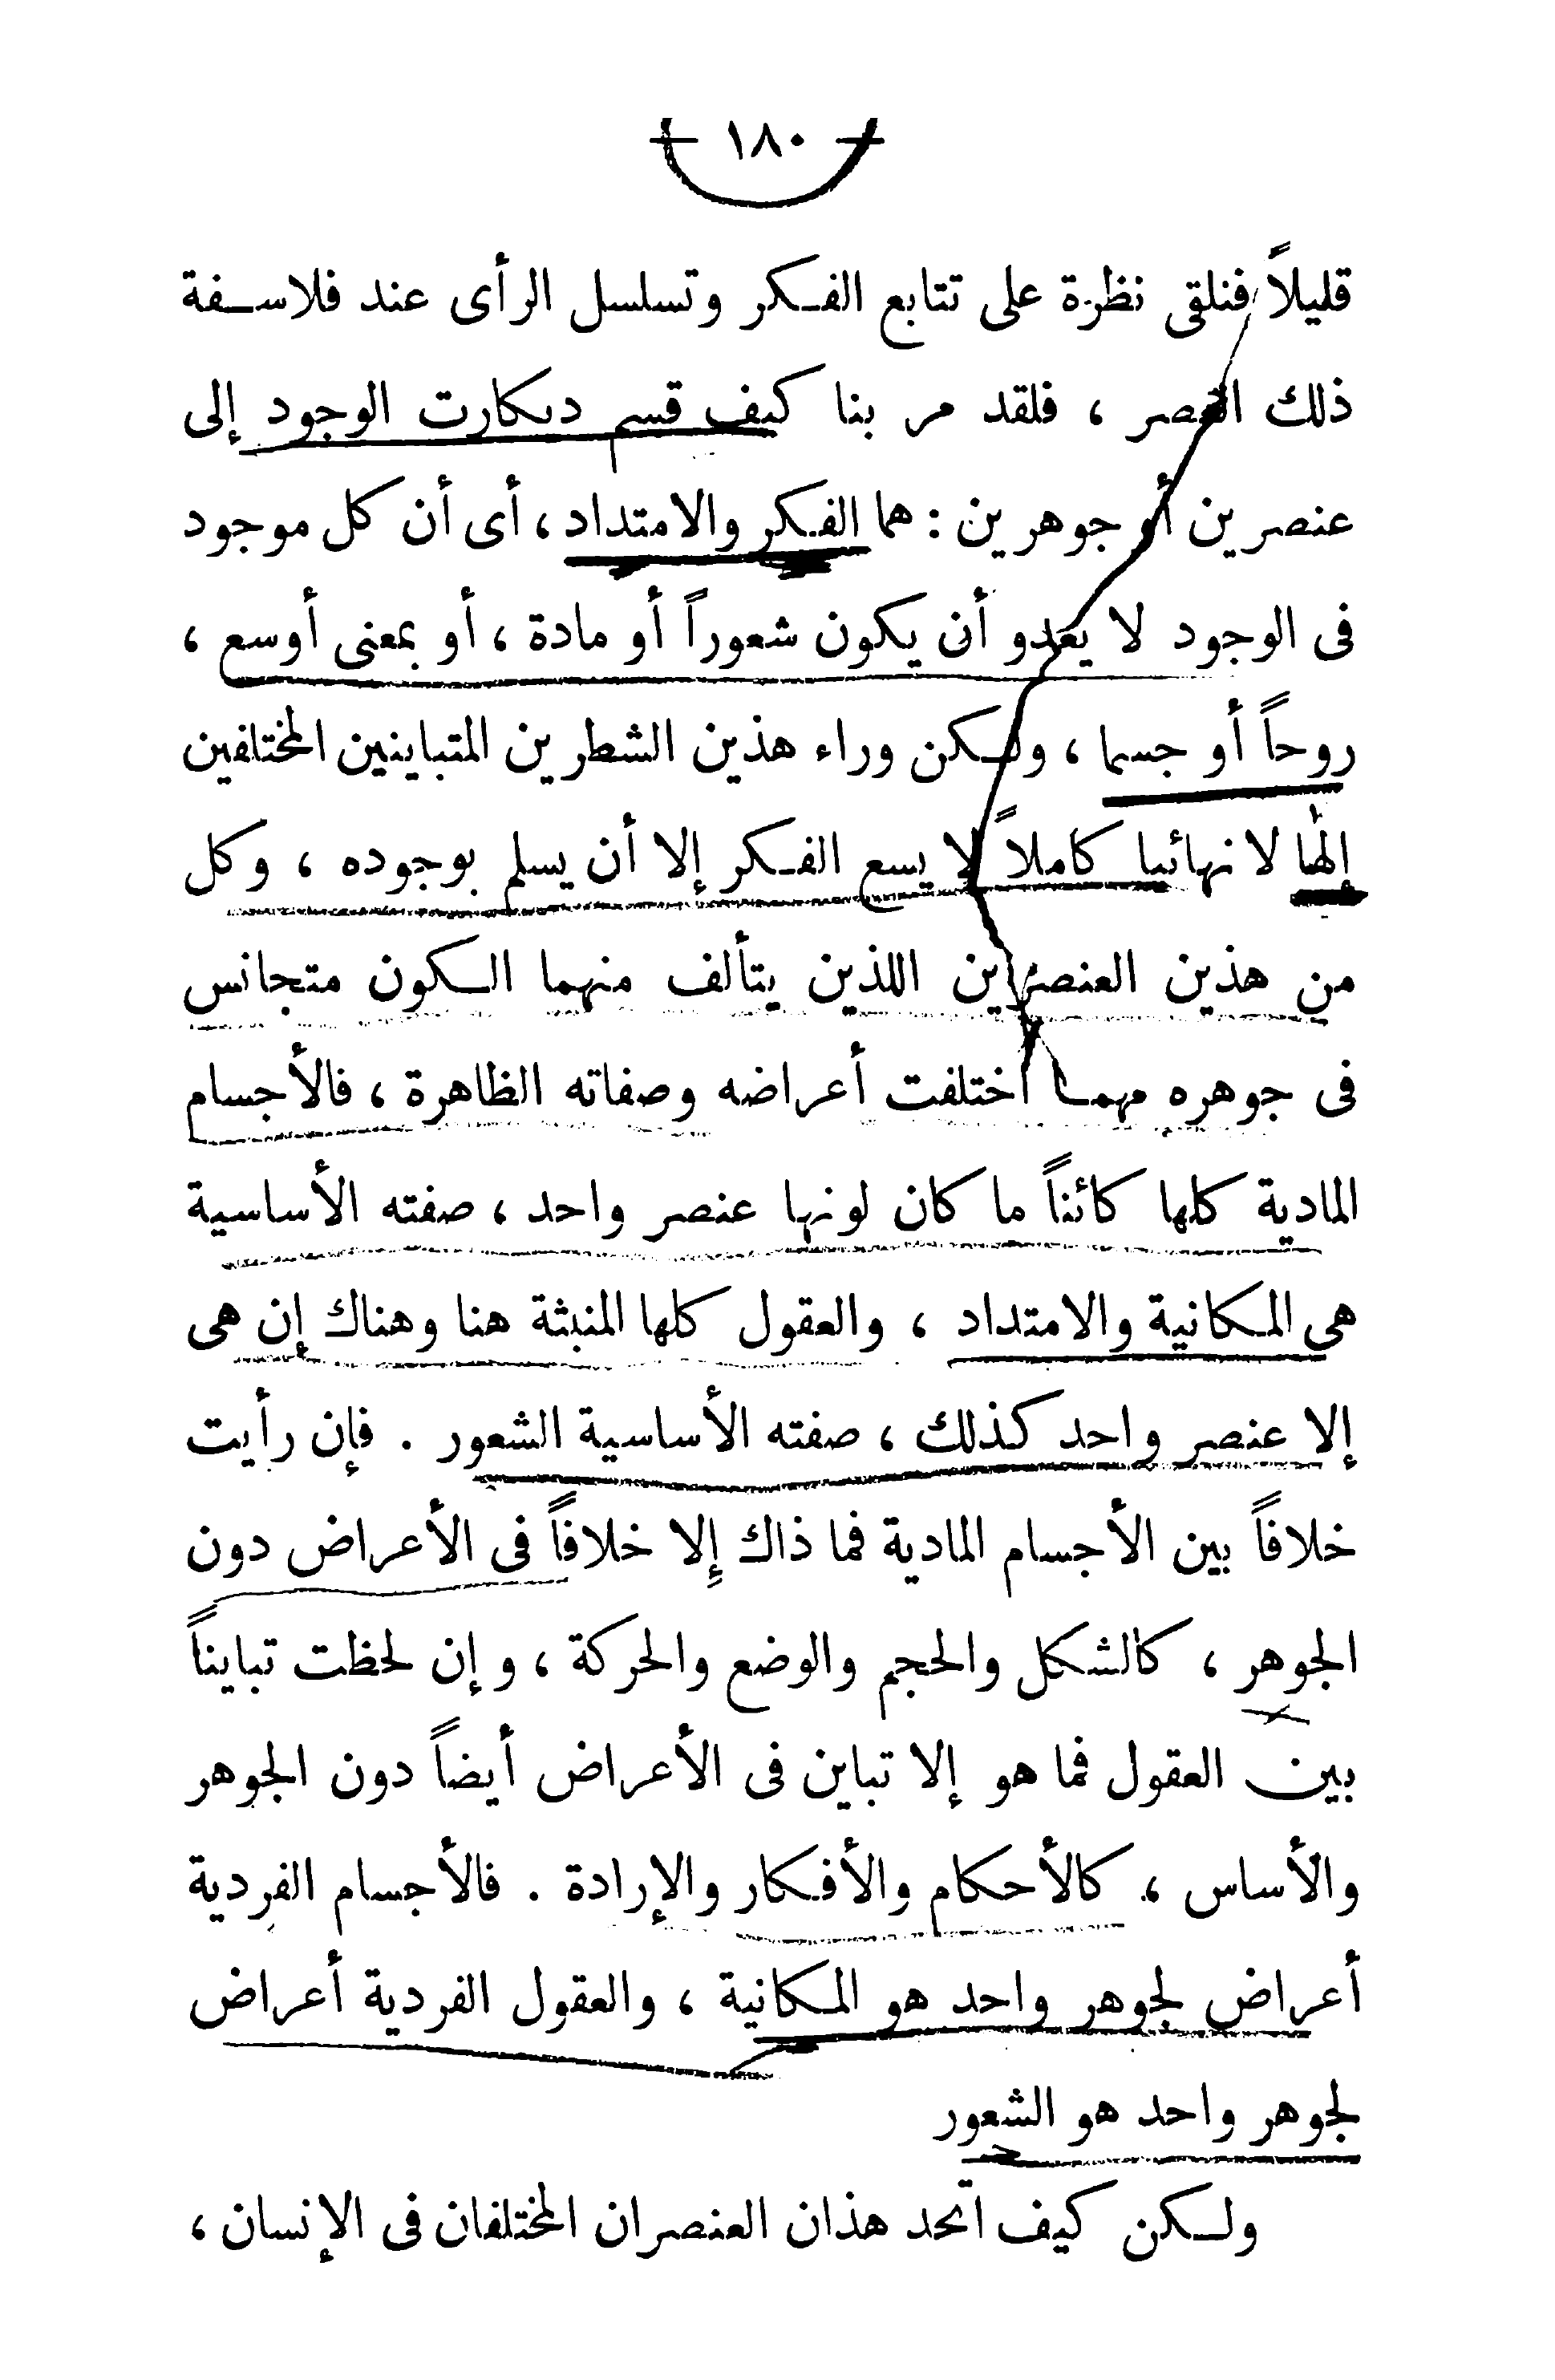 — ١٨٠ —
قليلاً فنلقى نظرة على تتابع الفكر وتسلسل الرأى عند فلاسفة
ذلك العصر ، فلقد مر بنا كيف قسم ديكارت الوجود إلى
عنصرين أو جوهرين : هما الفكر والامتداد ، أى أن كل موجود
فى الوجود لا يعدو أن يكون شعوراً أو مادة ، أو بمعنى أوسع ،
روحاً أو جسما ، ولكن وراء هذين الشطرين المتباينين المختلفين
إلها لا نهائيا كاملاً لا يسع الفكر إلا أن يسلم بوجوده ، وكل
من هذين العنصرين اللذين يتألف منهما الكون متجانس
فى جوهره مهما اختلفت أعراضه وصفاته الظاهرة ، فالأجسام
المادية كلها كائناً ما كان لونها عنصر واحد ، صفته الأساسية
هى المكانية والامتداد ، والعقول كلها المنبثة هنا وهناك إن هى
إلا عنصر واحد كذلك ، صفته الأساسية الشعور . فإن رأيت
خلافاً بين الأجسام المادية فما ذاك إِلا خلافاً فى الأعراض دون
الجوهر ، كالشكل والحجم والوضع والحركة ، وإن لحظت تبايناً
بين العقول فما هو إلا تباين فى الأعراض أيضاً دون الجوهر
والأساس ، كالأحكام والأفكار والإرادة . فالأجسام الفردية
أعراض لجوهر واحد هو المكانية ، والعقول الفردية أعراض
لجوهر واحد هو الشعور
ولكن كيف اتحد هذان العنصران المختلفان فى الإنسان ،